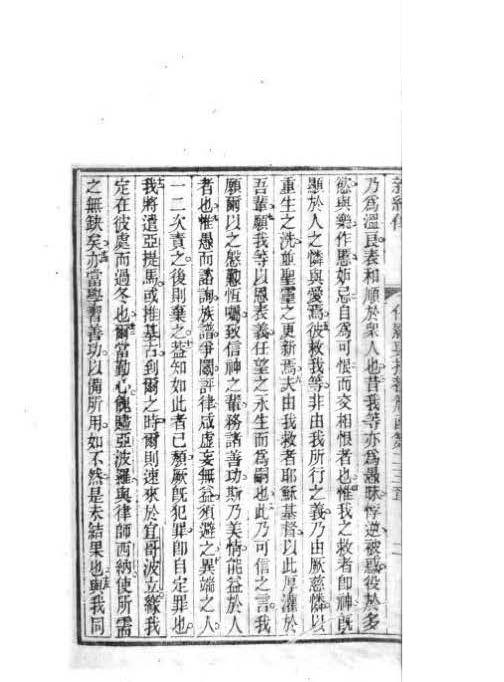 乃為溫良表和順於眾人也昔我等亦為愚昧悖逆被惑役於多
慾與樂作惡妬忌自為可恨而交相恨者也惟我之救者即神既
顯於人之憐與愛焉彼救我等非由我所行之義乃由厥慈憐以
重生之洗並聖靈之更新焉夫由我救者耶穌基督以此厚灌於
吾輩願我等以恩表義任望之永生而為嗣也此乃可信之言我
願爾以之慇懃恆囑致信神之輩務諸善功斯乃美情能益於人
者也惟愚而諮詢族譜爭鬬評律咸虛妄無益須避之異端之人
一二次責之後則棄之葢知如此者已頹厥旣犯罪卽自定罪也
我將遣亞提馬或推基古到爾之時爾則速來於宜哥波立緣我
定在彼處而過冬也爾當勤心餽贐亞波羅與律師西納使所需
之無缺矣亦當學習善功以備所用如不然是未結果也與我同